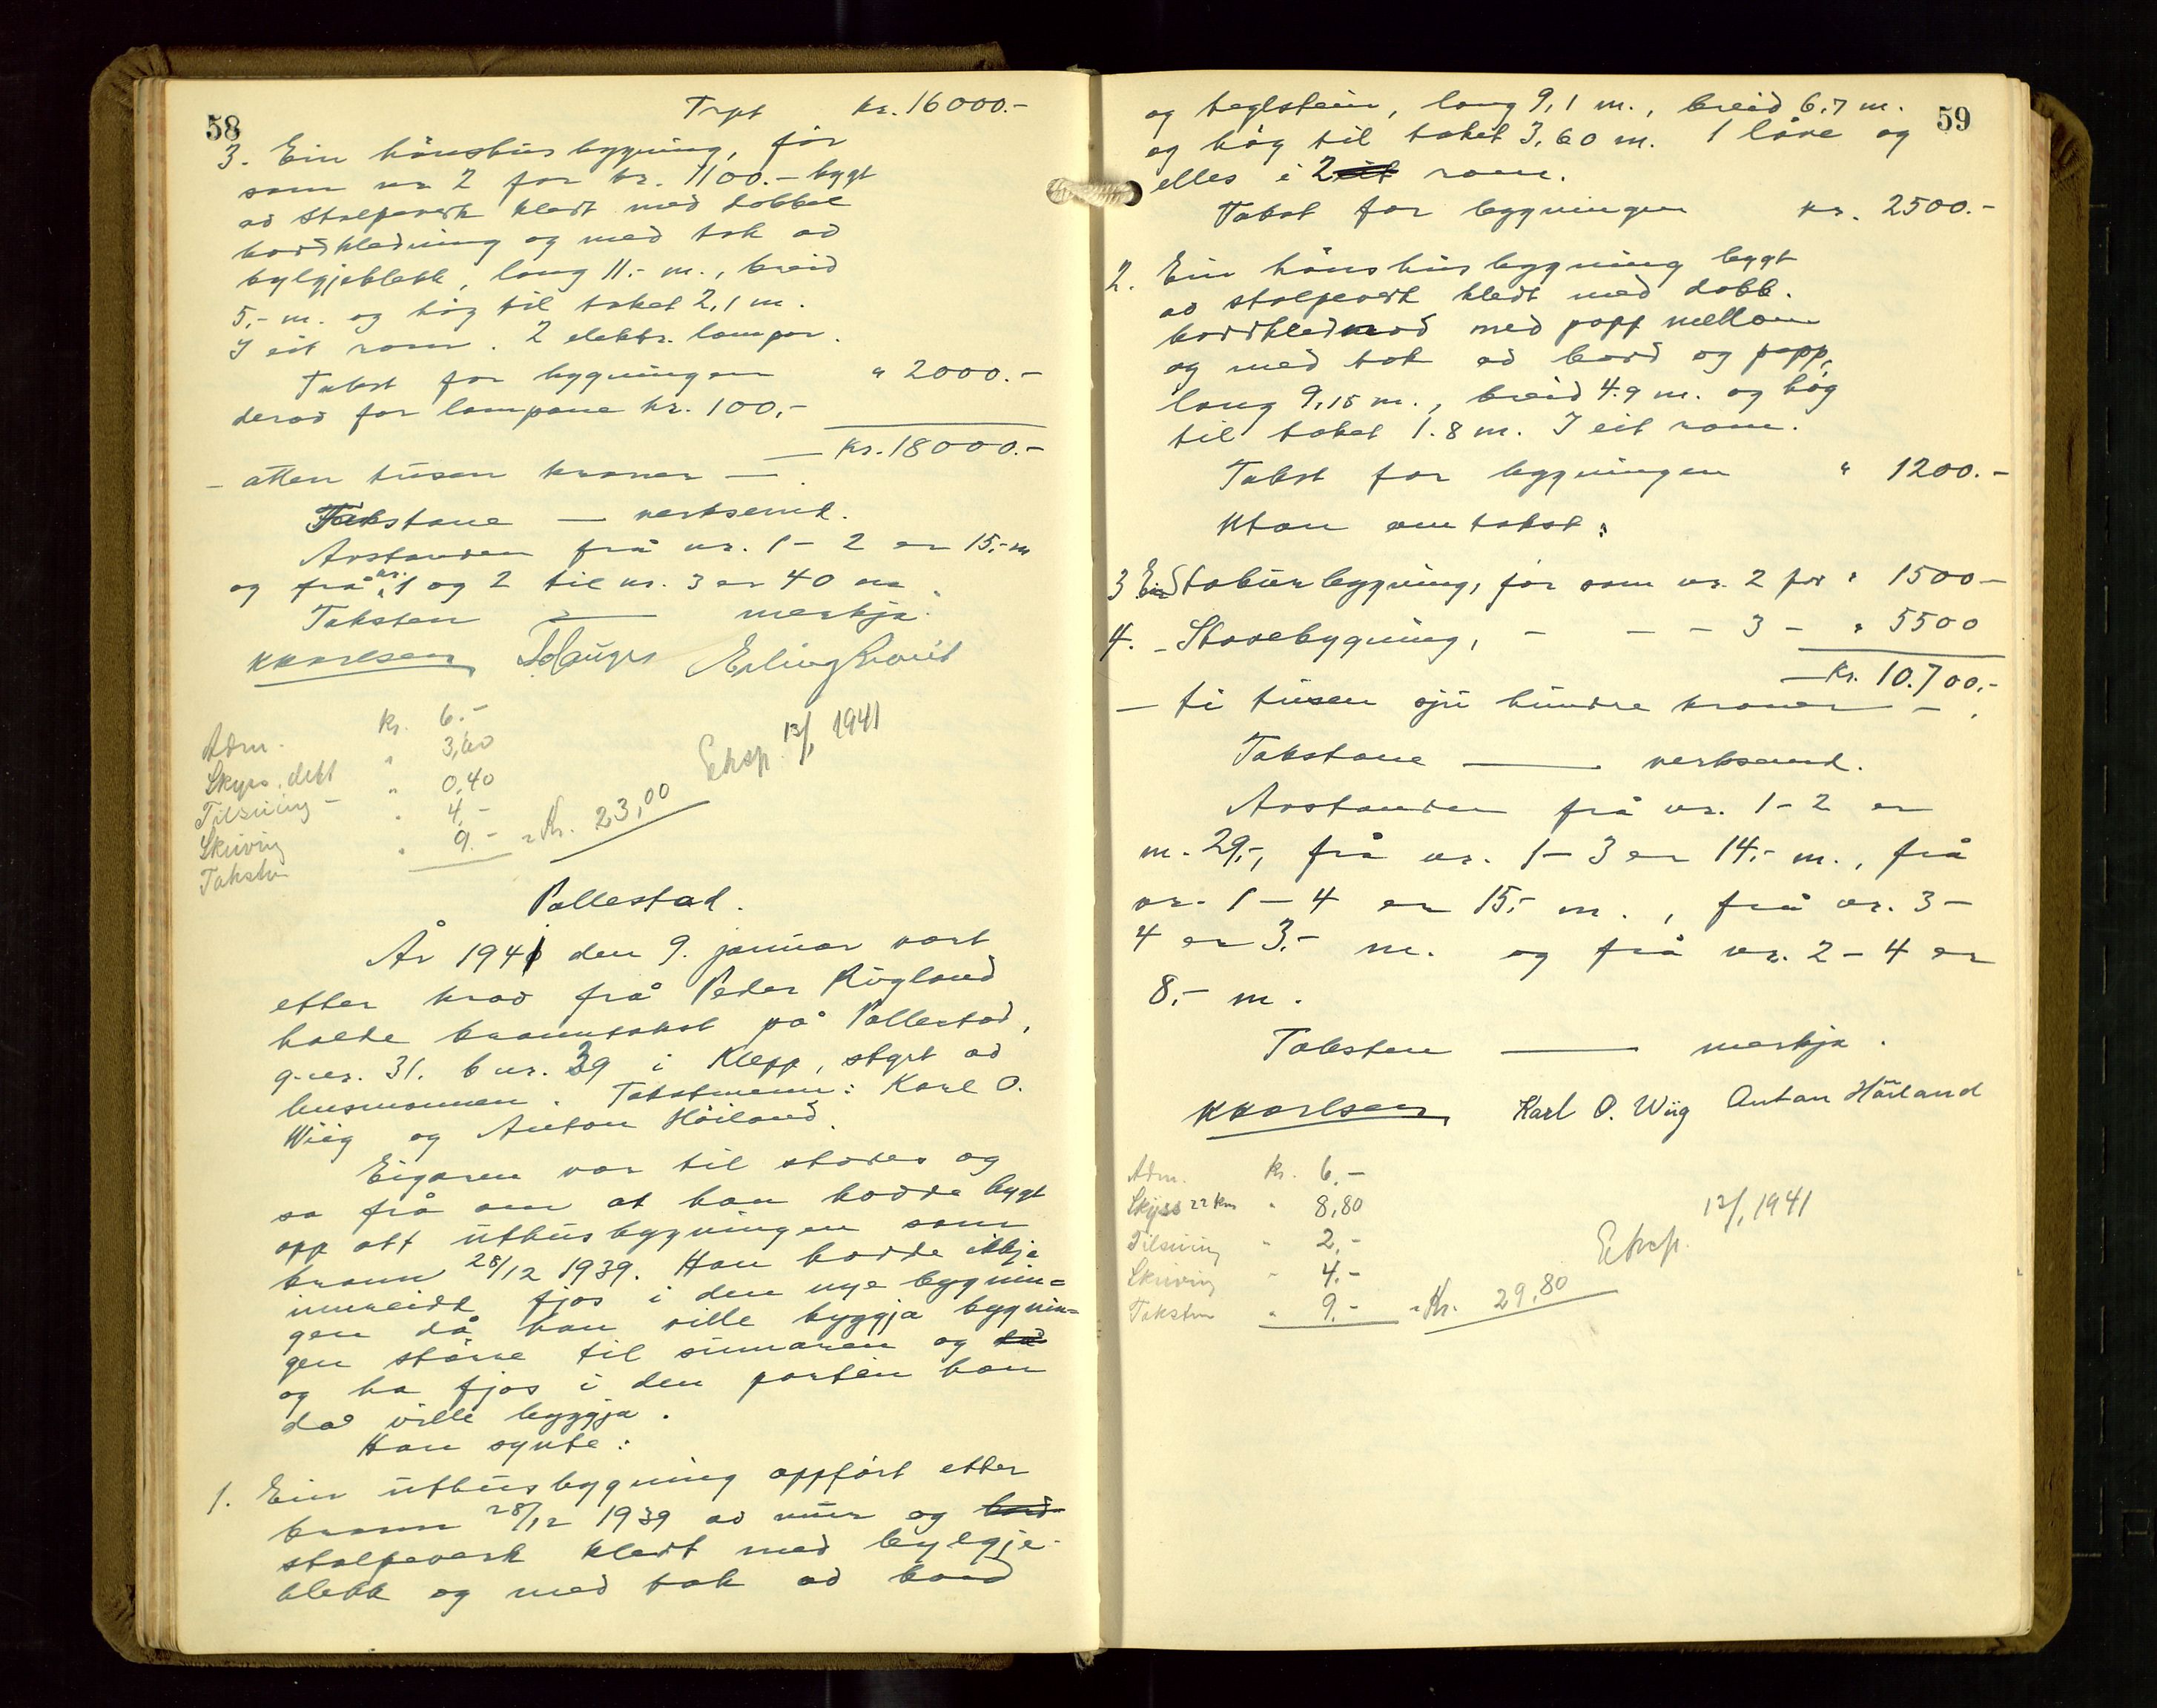 58
Trpt kr. 16000.-
3. Ein hönshusbygning, för
som nr. 2 for kr. 1100.- bygt
av stolpeverk kledt med dobbel
bordkledning og med tak av
bylgjeblekk, lang 11.- m., breid
5,- m. og hög til taket 2,1 m.
I eit rom. 2 elektr. lampor.
Takst for bygningen " 2000.-
derav for lampone kr. 100,-
Kr. 18000.-
- atten tusen kroner -
Takstane — verksemd.
Avstanden frå nr. 1-2 er 15,- m
og frå nr. 1 og 2 til nr. 3 er 40 m
Taksten — merkja.
KKarlsen Erling
Adm. kr. 6.-
Skyss, delt " 3,60
Tilsuing - " 0,40
Skriving " 4,-
Takstm " 9.- = Kr. 23,00
Eksp. 13/1 1941
Pollestad.
År 1941 den 9. januar vart
etter krav frå Peder Rugland
halde branntakst på Pollestad,
g.nr. 31. b.nr. 39 i Klepp, styrt av
husmannen. Takstmenn: Karl O.
Wiig og Anton Höiland.
Eigaren var til stades og
sa frå om at han hadde bygt
opp att uthusbygningen som
brann 28/12 1939. Han hadde ikkje
innreidt fjos i den nye bygnin=
gen då han ville byggja bygnin=
gen större til sumaren og
og ha fjos i den parten han
då ville byggja.
Han synte:
1. Ein uthusbygning oppfört etter
brann 28/12 1939 av mur og
stolpeverk kledt med bylgje-
blekk og med tak av bord
59
og teglstein, lang 9,1 m., breid 6,7 m.
og hög til taket 3,60 m. 1 låve og
elles i 2 rom.
Takst for bygningen kr. 2500.-
2. Ein hönshusbygning bygt
av stolpeverk kledt med dobb.
bordkledned med papp mellom
og med tak av bord og papp,
lang 9,15 m., breid 4.9 m. og hög
til taket 1.8 m. I eit rom.
Takst for bygningen " 1200.-
Utan omtakst:
3. Ein Stabursbygning, för som nr. 2 for " 1500-
4. - Stovebygning, - - - 3 - " 5500
Kr. 10.700,-
- ti tusen sju hundre kroner -
Takstane — verksemd.
Avstanden frå nr. 1-2 er
m. 29,-, frå nr. 1-3 er 14,- m., frå
nr. 1-4 er 15,- m., frå nr. 3-
4 er 3.- m. og frå nr. 2-4 er
8,- m.
Taksten — merkja.
KKarlsen Karl O. Wiig Anton Höiland
Adm. kr. 6.-
Skyss 22 km " 8,80
Tilsuing " 2,-
Skriving " 4.-
Takstm " 9.- = Kr. 29,80
Eksp. 13/1 1941